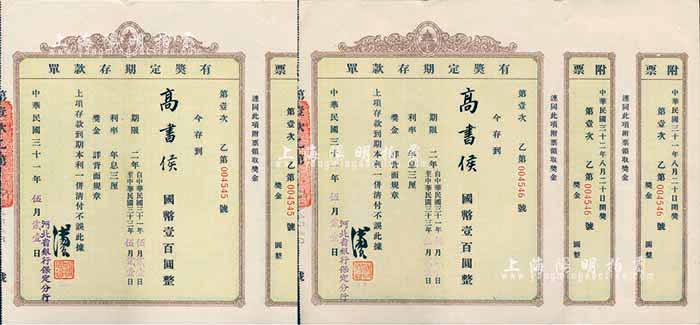 單款存期定獎有
第壹次 乙第004545號
今存到
高書侯 國幣壹百圓整
期限 二年 自中華民國三十一年伍月 日
至中華民國三十三年伍月 日
利率 年息三厘
獎金 詳背面規章
上項存款到期本利一併清付不誤此據
中華民國三十一年伍月 日
河北省銀行保定分行
票
第壹次 乙第004545號
獎金 圓整
憑同此項附票領取獎金
單款存期定獎有
第壹次 乙第004546號
今存到
高書侯 國幣壹百圓整
期限 二年 自中華民國三十一年伍月 日
至中華民國三十三年伍月 日
利率 年息三厘
獎金 詳背面規章
上項存款到期本利一併清付不誤此據
中華民國三十一年伍月 日
河北省銀行保定分行
票附
中華民國三十二年八月二十日開獎
第壹次 乙第004546號
獎金 圓整
憑同此項附票領取獎金
票附
中華民國三十一年八月二十日開獎
第壹次 乙第004546號
獎金 圓整
憑同此項附票領取獎金
上海陽明拍賣